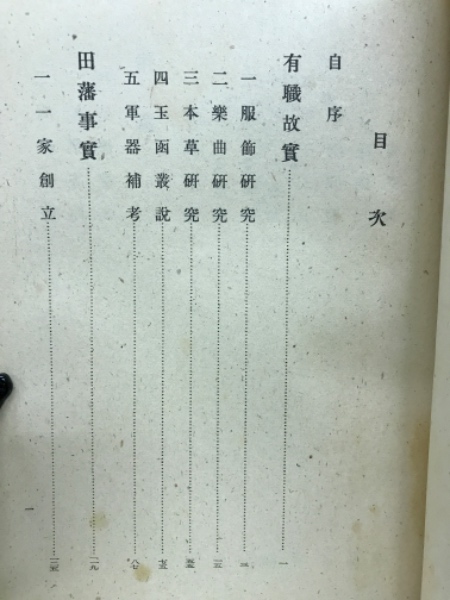 目次
自序
有職故實……一
一 服飾研究……
二 樂曲研究……
三 本草研究……
四 玉函叢説……
五 軍器補考……
田藩事實……二九
一 一家創立……
一